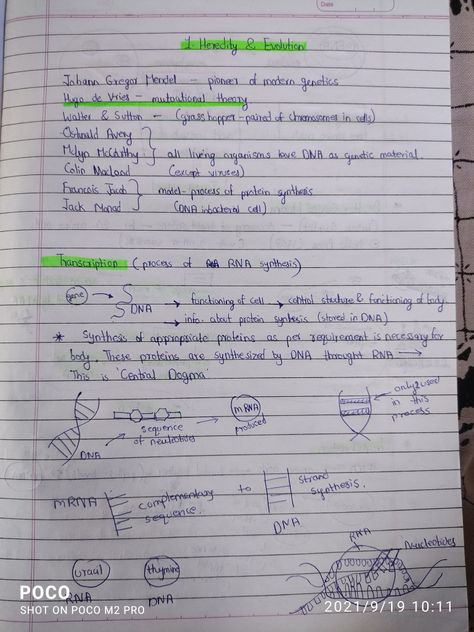 Date
1. Heredity & Evolution
Johann Gregor Mendel – pioneer of modern genetics
Hugo de Vries – mutational theory
Walter & Sutton – (grasshopper - paired of chromosomes in cells)
Oswald Avery
Mclyn McCarthy } all living organisms have DNA as genetic material.
Colin Macleod (except viruses)
Francois Jacob } model - process of protein synthesis
Jack Monad (DNA in bacterial cell)
Transcription (process of RNA synthesis)
gene → DNA → functioning of cell → control structure & functioning of body
→ info. about protein synthesis (stored in DNA)
* Synthesis of appropriate proteins as per requirement is necessary for
body. These proteins are synthesized by DNA throught RNA →
This is 'Central Dogma'
only 2 used
in this
process
mRNA
produced
sequence
of neucleotides
DNA
mRNA complementary sequence. to strand synthesis.
DNA
RNA
Nucleotides
uracil thymine
RNA DNA
POCO
SHOT ON POCO M2 PRO
2021/9/19 10:11